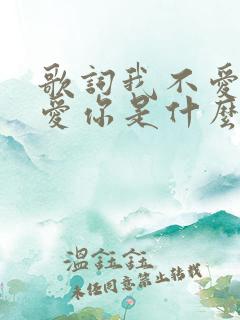 歌詞我不愛
愛你是什麼
溫鈺鈺
未经同意禁止转载